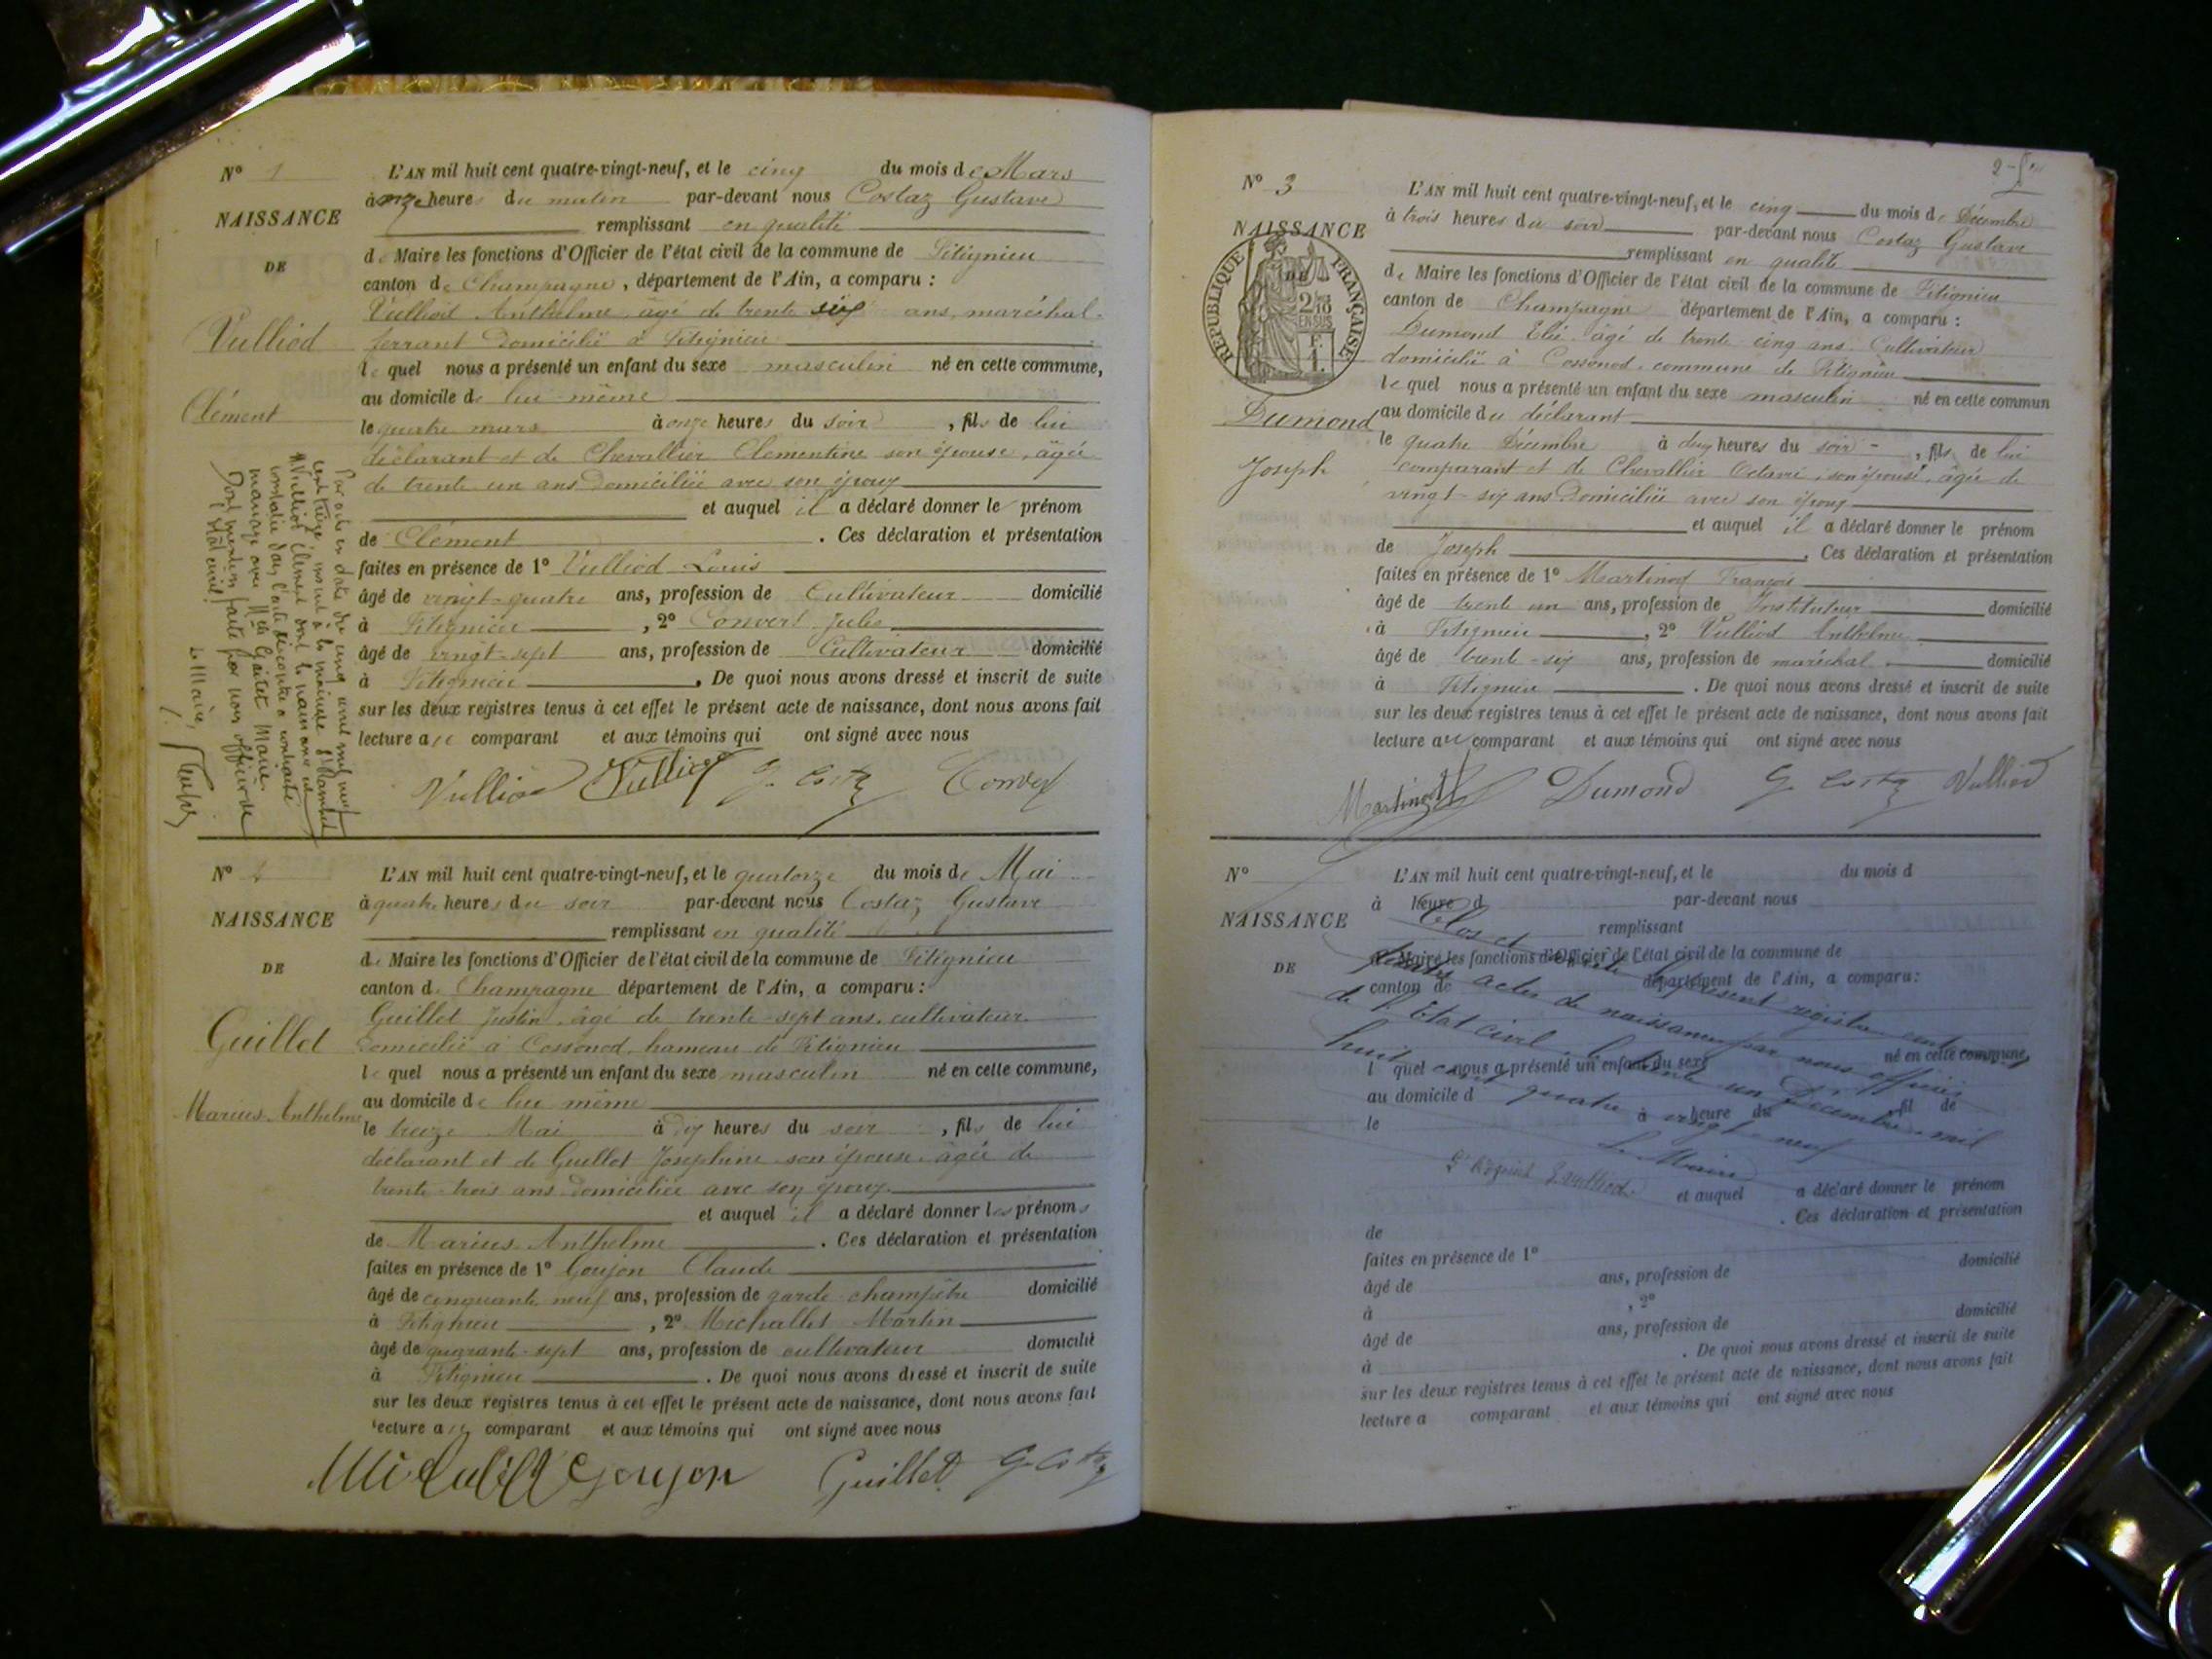 N° 1
NAISSANCE
DE
Vulliod
Clément
L'AN mil huit cent quatre-vingt-neuf, et le cinq du mois de Mars
à onze heures du matin par-devant nous Costaz Gustave
remplissant en qualité
de Maire les fonctions d'Officier de l'état civil de la commune de Pitignieu
canton de Champagne, département de l'Ain, a comparu :
Vulliod Anthelme âgé de trente six ans, maréchal-
ferrant Domicilié à Pitignieu
le quel nous a présenté un enfant du sexe masculin né en cette commune,
au domicile de lui-même
le quatre mars à onze heures du soir, fils de lui
déclarant et de Chevallier Clementine son épouse, âgée
de trente un ans Domiciliée avec son époux
et auquel il a déclaré donner le prénom
de Clément. Ces déclaration et présentation
faites en présence de 1° Vulliod Louis
âgé de vingt-quatre ans, profession de Cultivateur domicilié
à Pitignieu, 2° Convert Jules
âgé de vingt-sept ans, profession de Cultivateur domicilié
à Pitignieu. De quoi nous avons dressé et inscrit de suite
sur les deux registres tenus à cet effet le présent acte de naissance, dont nous avons fait
lecture au comparant et aux témoins qui ont signé avec nous
Vulliod Vulliod G. Costaz Convert
Par acte en date du cinq avril mil neuf
cent treize inscrit à la mairie d'
Vulliod Clément dont la naissance est
constatée dans l'acte ci-contre a contracté
mariage avec Mlle Gaitet Marie
Dont mention faite par nous officier de
l'état civil.
Le Maire,
N° 2
NAISSANCE
DE
Guillet
Marius Anthelme
L'AN mil huit cent quatre-vingt-neuf, et le quatorze du mois de Mai
à quatre heures du soir par-devant nous Costaz Gustave
remplissant en qualité
de Maire les fonctions d'Officier de l'état civil de la commune de Pitignieu
canton de Champagne département de l'Ain, a comparu :
Guillet Justin, âgé de trente-sept ans, cultivateur
Domicilié à Cossonod, hameau de Pitignieu
le quel nous a présenté un enfant du sexe masculin né en cette commune,
au domicile de lui même
le treize Mai à dix heures du soir, fils de lui
déclarant et de Guillot Joséphine son épouse, âgée de
trente-trois ans domiciliée avec son époux
et auquel il a déclaré donner les prénoms
de Marius Anthelme. Ces déclaration et présentation
faites en présence de 1° Goujon Claude
âgé de cinquante neuf ans, profession de garde champêtre domicilié
à Pitignieu, 2° Michallet Martin
âgé de quarante-sept ans, profession de cultivateur domicilié
à Pitignieu. De quoi nous avons dressé et inscrit de suite
sur les deux registres tenus à cet effet le présent acte de naissance, dont nous avons fait
lecture au comparant et aux témoins qui ont signé avec nous
Michallet Goujon Guillet G. Costaz
N° 3
NAISSANCE
DE
RÉPUBLIQUE FRANÇAISE
2/10
EN SUS
Dumond
Joseph
L'AN mil huit cent quatre-vingt-neuf, et le cinq du mois de Décembre
à trois heures du soir par-devant nous Costaz Gustave
remplissant en qualité
de Maire les fonctions d'Officier de l'état civil de la commune de Pitignieu
canton de Champagne département de l'Ain, a comparu :
Dumond Elie âgé de trente cinq ans Cultivateur
domicilié à Cossonod, commune de Pitignieu
le quel nous a présenté un enfant du sexe masculin né en cette commun
au domicile du déclarant
le quatre Décembre à deux heures du soir, fils de lui
comparant et de Chevallier Octavie, son épouse, âgée de
vingt-six ans Domiciliée avec son époux
et auquel il a déclaré donner le prénom
de Joseph. Ces déclaration et présentation
faites en présence de 1° Martinod François
âgé de trente un ans, profession de Instituteur domicilié
à Pitignieu, 2° Vulliod Anthelme
âgé de trente-six ans, profession de maréchal domicilié
à Pitignieu. De quoi nous avons dressé et inscrit de suite
sur les deux registres tenus à cet effet le présent acte de naissance, dont nous avons fait
lecture au comparant et aux témoins qui ont signé avec nous
Martinod Dumond G. Costaz Vulliod
N°
NAISSANCE
DE
L'AN mil huit cent quatre-vingt-neuf, et le du mois d
à heure d par-devant nous
remplissant
de Maire les fonctions d'Officier de l'état civil de la commune de
canton de département de l'Ain, a comparu :
l quel nous a présenté un enfant du sexe né en cette commune,
au domicile d
le à heure du fil de
et auquel a déclaré donner le prénom
de . Ces déclaration et présentation
faites en présence de 1°
âgé de ans, profession de domicilié
à , 2°
âgé de ans, profession de domicilié
à . De quoi nous avons dressé et inscrit de suite
sur les deux registres tenus à cet effet le présent acte de naissance, dont nous avons fait
lecture a comparant et aux témoins qui ont signé avec nous
Clos et le présent registre
actes de naissance par nous officier
de l'Etat Civil le trente un Décembre mil
huit cent quatre vingt neuf
Le Maire